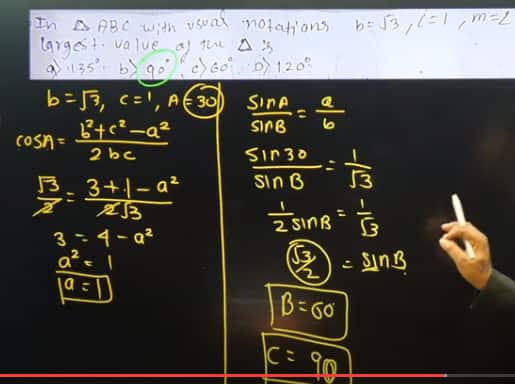 In △ ABC with usual notations b=√3, c=1, m=∠
largest value of the △ is
a) 135° b) 90° c) 60° D) 120°
b=√3, c=1, A=30
cosA = b²+c²-a² / 2bc
√3/2 = 3+1-a² / 2√3
3 = 4-a²
a² = 1
a=1
sinA/sinB = a/b
sin30/sinB = 1/√3
1/2 sinB = 1/√3
√3/2 = sinB
B=60
C= 90